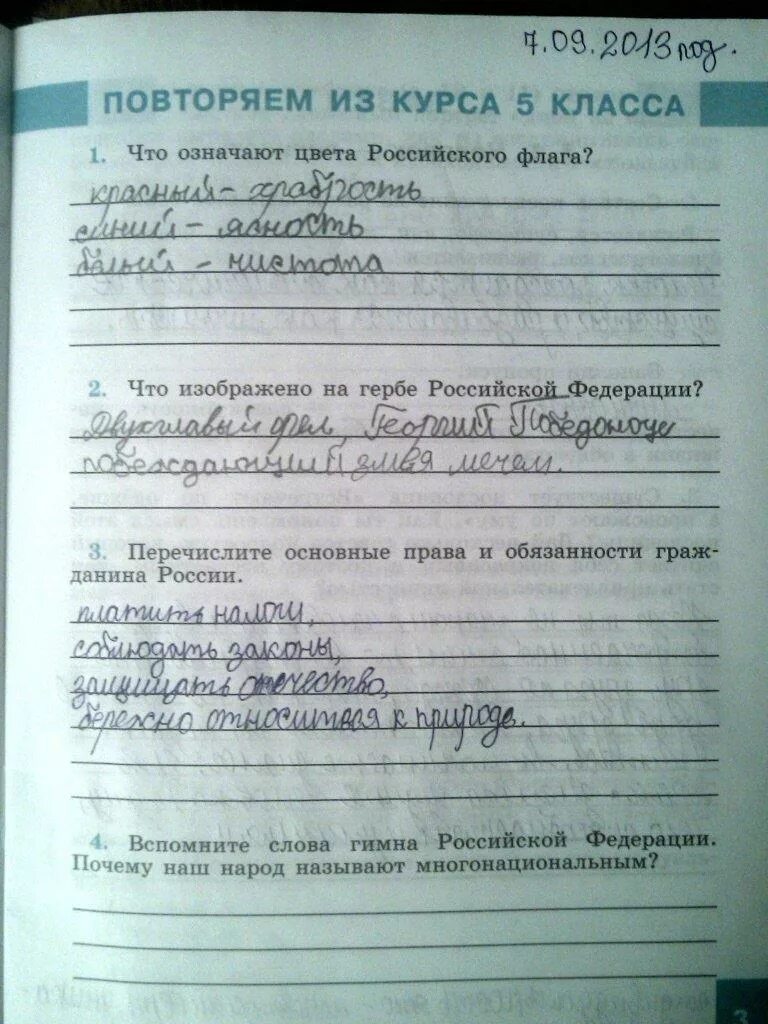 7.09.2013 год.
ПОВТОРЯЕМ ИЗ КУРСА 5 КЛАССА
1. Что означают цвета Российского флага?
красный - храбрость
синий - ясность
белый - чистота
2. Что изображено на гербе Российской Федерации?
Двухглавый орел, Георгий Победоносец
побеждающий змея мечем.
3. Перечислите основные права и обязанности граж-
данина России.
платить налоги,
соблюдать законы,
защищать отечество,
бережно относиться к природе.
4. Вспомните слова гимна Российской Федерации.
Почему наш народ называют многонациональным?
3